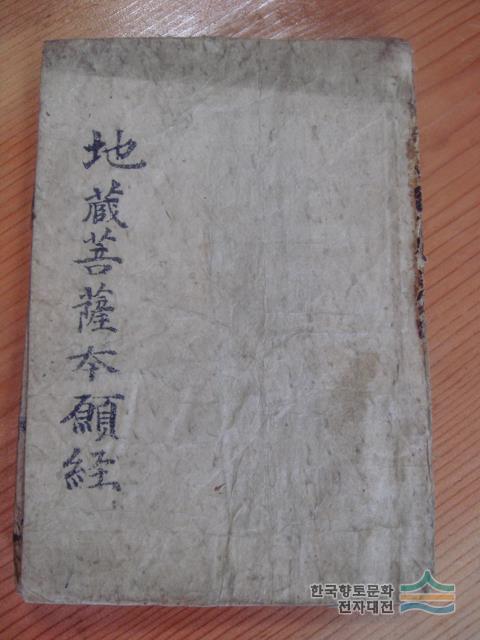 地蔵菩薩本願経
한국향토문화
전자대전